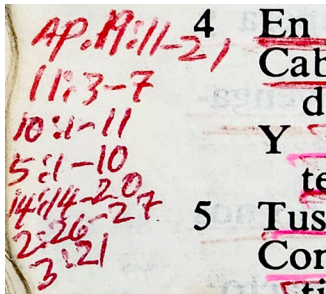 AP.19:11-21
11:3-7
10:1-11
5:1-10
14:14-20
2:26-27
3:21
4 En
Cab
d
Y
te
5 Tus
Cor